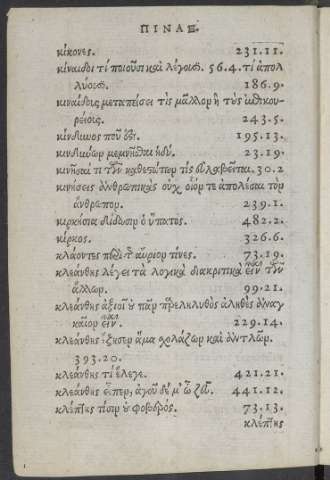 ΠΙΝΑΞ.
κίκονες. 231.11.
κίναιδοι τί ποιοῦσι καὶ λέγουσι. 56.4. τί ἀπολ
λύουσι. 186.9.
κιναίδοις μεταπείσει τίς μᾶλλον ἢ τοὺς
ρείοις. 243.5.
κίνδυνος ποῦ ἐστι. 195.13.
κινδύνων μεμνῆσθαι ἡδύ. 23.19.
κινῆσαι τι τῶν καθεστώτων τίς εὐλαβεῖται. 30.2
κινήσεις ἀνθρωπικὰς οὐχ οἷόν τε ἀπολέσαι τὸν
ἄνθρωπον. 239.1.
κιρκήσια δίδωσιν ὁ ὕπατος. 482.2.
κίρκος. 326.6.
κλάοντες περὶ τ αὔριον τίνες. 73.19.
κλεάνθης λέγει τὰ λογικὰ διακριτικὰ εἶναι τῶν
ἄλλων. 99.21.
κλεάνθης ἀξιοῖ οὐ πᾶν παρεληλυθὸς ἀληθὲς ἀναγ
καῖον εἶναι. 229.14.
κλεάνθης ἔζησεν ἅμα σχολάζων καὶ ἀντλῶν.
393.20.
κλεάνθης τί ἔλεγε. 421.21.
κλεάνθης εἶπεν, ἄγου δέ μ' ὦ ζεῦ. 441.12.
κλέπτης τίσιν οὐ φοβερός. 73.13.
κλέπτης